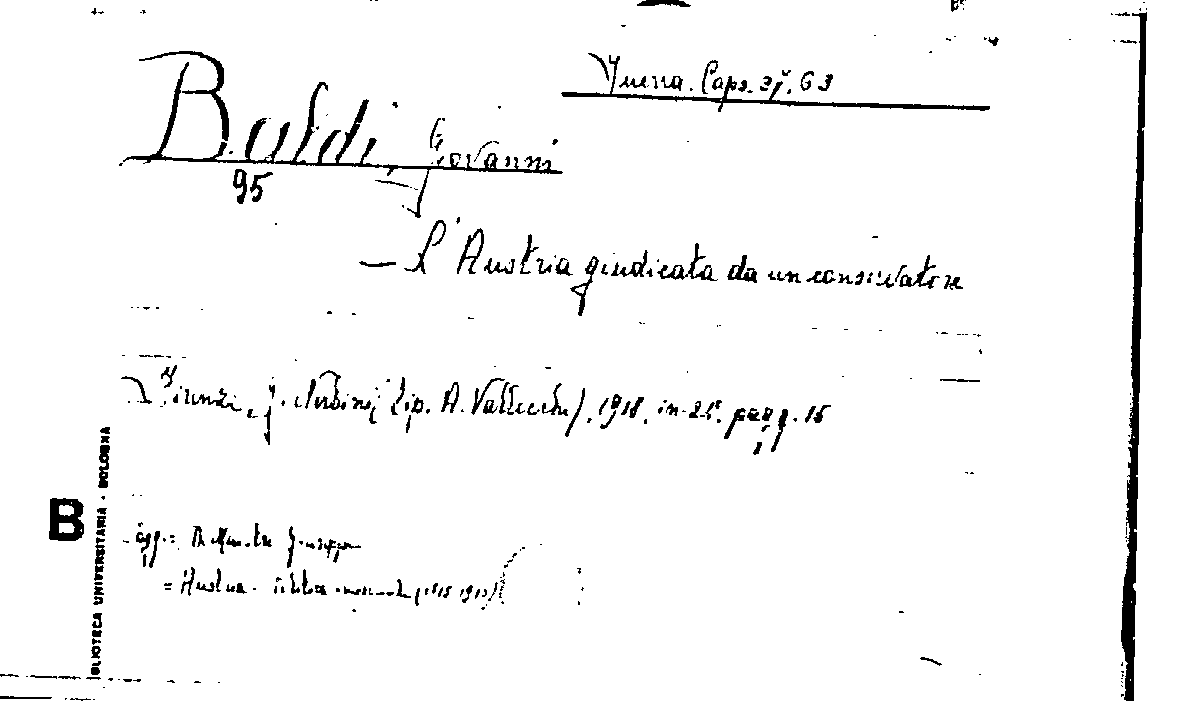 Guerra. Caps. 37. 63
Baldi, Giovanni
95
— L'Austria giudicata da un conservatore
Firenze, G. Nerbini (tip. A. Vallecchi), 1918. in-24°. pagg. 15
B
BIBLIOTECA UNIVERSITARIA - BOLOGNA
Giuseppe
= Austria